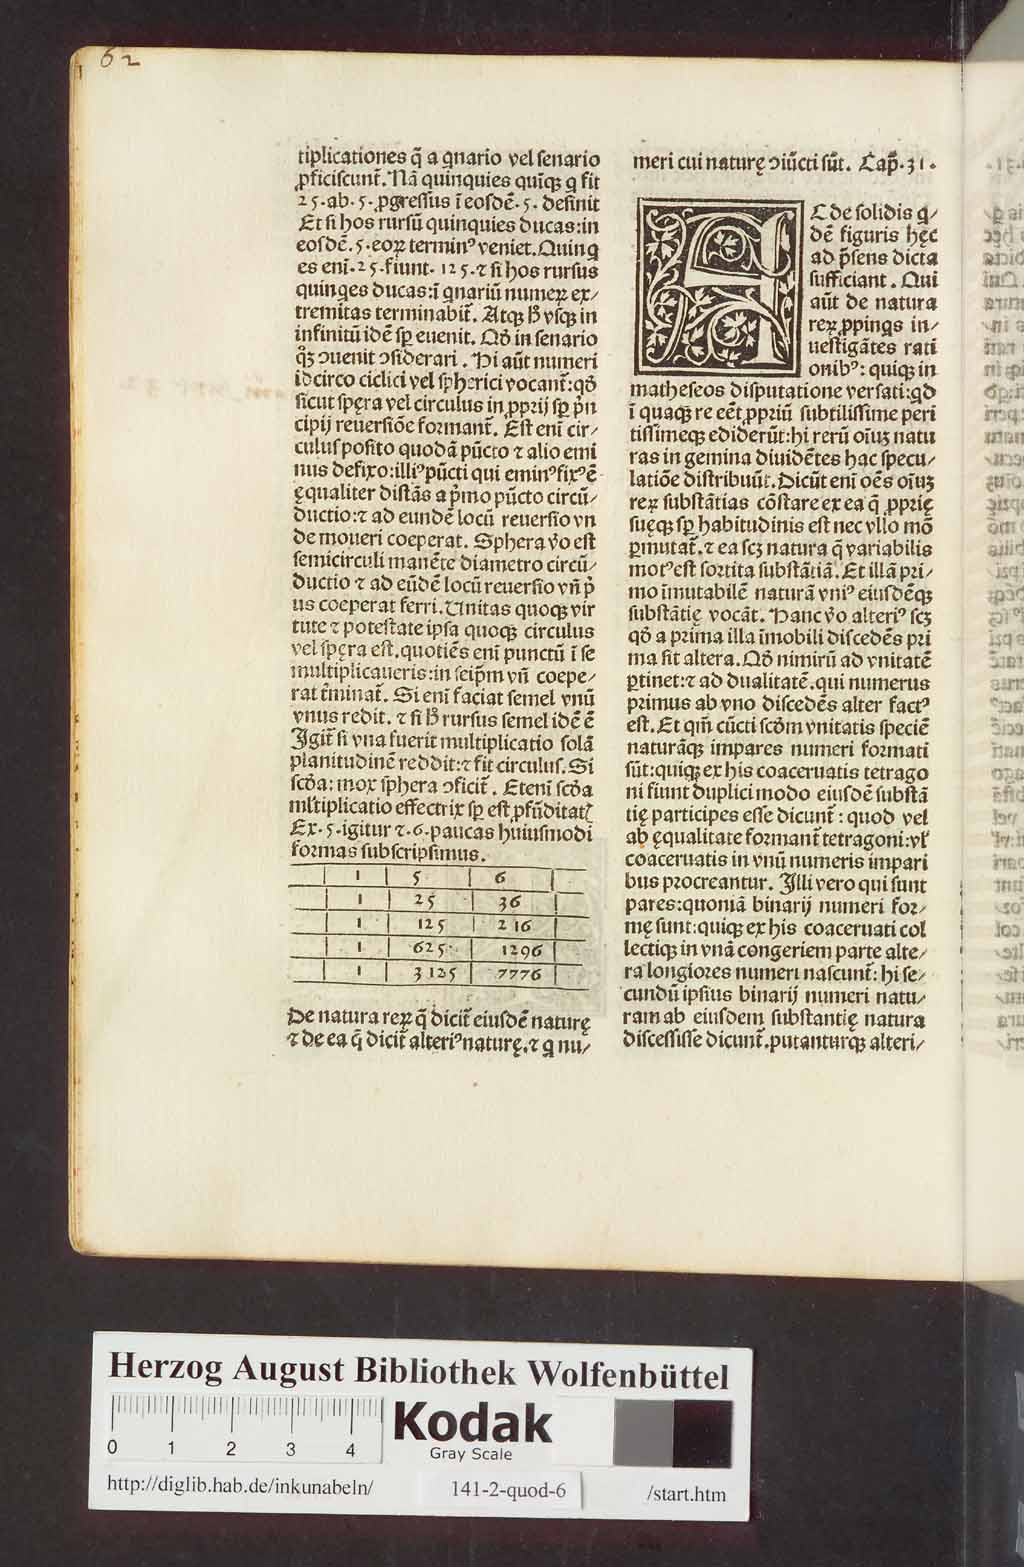 62
tiplicationes q̃ a q̃nario vel senario
ꝓficiscunt̃. Nã quinquies quĩqꝫ q̃ fit
25. ab .5. ꝓgressus ĩ eosdẽ .5. desinit
Et si hos rursũ quinquies ducas: in
eosdẽ .5. eoꝝ terminꝰ veniet. Quinq
es enĩ .25. fiunt .125. ⁊ si hos rursus
quinq̃es ducas: ĩ q̃nariũ numeꝝ ex⸗
tremitas terminabit̃. Atqꝫ vsqꝫ in
infinitũ idẽ sꝑ euenit. Qð in senario
ꝯuenit ꝯsiderari. Hi aũt numeri
idcirco ciclici vel spherici vocant̃: qð
sicut spęra vel circulus in ꝓprij sꝑ pͥn
cipij reuersiõe formant̃. Est enĩ cir⸗
culus posito quodã pũcto ⁊ alio emi
nus defixo: illiꝰ pũcti qui eminꝰ fixꝰ ẽ
ęqualiter distãs a pͥmo pũcto circũ⸗
ductio: ⁊ ad eundẽ locũ reuersio vn
de moueri coeperat. Sphera v̊o est
semicirculi manẽte diametro circũ⸗
ductio ⁊ ad eũdẽ locũ reuersio vñ pͥ
us coeperat ferri. Unitas quoqꝫ vir
tute ⁊ potestate ipsa quoqꝫ circulus
vel spęra est. quotiẽs enĩ punctũ ĩ se
multiplicaueris: in seip̃m vñ coepe⸗
rat t̃minat̃. Si enĩ faciat semel vnũ
vnus redit. ⁊ si rursus semel idẽ ẽ
Igit̃ si vna fuerit multiplicatio solã
planitudinẽ reddit: ⁊ fit circulus. Si
scð̃a: mox sphera ꝯficit̃. Etenĩ scð̃a
ml̃tiplicatio effectrix sꝑ est ꝓfũditat̃
Ex .5. igitur ⁊ .6. paucas huiusmodi
formas subscripsimus.
1 | 5 | 6
1 | 25 | 36
1 | 125 | 216
1 | 625 | 1296
1 | 3125 | 7776
De natura reꝝ q̃ dicit̃ eiusdẽ naturę
⁊ de ea q̃ dicit̃ alteriꝰ naturę. ⁊ q̃ nu⸗
meri cui naturę ꝯiũcti sũt. Cap̃. 31.
AC de solidis q̃⸗
dẽ figuris hęc
ad p̃sens dicta
sufficiant. Qui
aũt de natura
reꝝ ꝓpinqs in⸗
uestigãtes rati
onibꝰ: quiqꝫ in
matheseos disputatione versati: qð
ĩ quaqꝫ re eẽt ꝓpriũ subtilissime peri
tissimeqꝫ ediderũt: hi rerũ oĩuꝫ natu
ras in gemina diuidẽtes hac specu⸗
latiõe distribuũt. Dicũt enĩ oẽs oĩuꝫ
reꝝ substãtias cõstare ex ea q̃ ꝓprię
suęqꝫ sꝑ habitudinis est nec vllo mõ
ꝑmutat̃. ⁊ ea scꝫ natura q̃ variabilis
motꝰ est sortita substãtiã. Et illã pri⸗
mo ĩmutabilẽ naturã vniꝰ eiusdẽqꝫ
substãtię vocãt. Hanc v̊o alteriꝰ scꝫ
qð a prima illa ĩmobili discedẽs pri
ma sit altera. Qð nimirũ ad vnitatẽ
ꝑtinet: ⁊ ad dualitatẽ. qui numerus
primus ab vno discedẽs alter factꝰ
est. Et qm̃ cũcti scð̃m vnitatis speciẽ
naturãqꝫ impares numeri formati
sũt: quiqꝫ ex his coaceruatis tetrago
ni fiunt duplici modo eiusdẽ substã
tię participes esse dicunt̃: quod vel
ab ęqualitate formant̃ tetragoni: vl̃
coaceruatis in vnũ numeris impari
bus procreantur. Illi vero qui sunt
pares: quoniã binarij numeri for⸗
mę sunt: quiqꝫ ex his coaceruati col
lectiqꝫ in vnã congeriem parte alte⸗
ra longiores numeri nascunt̃: hi se⸗
cundũ ipsius binarij numeri natu⸗
ram ab eiusdem substantię natura
discessisse dicunt̃. putanturqꝫ alteri⸗
Herzog August Bibliothek Wolfenbüttel
0 1 2 3 4
Kodak
Gray Scale
http://diglib.hab.de/inkunabeln/ 141-2-quod-6 /start.htm